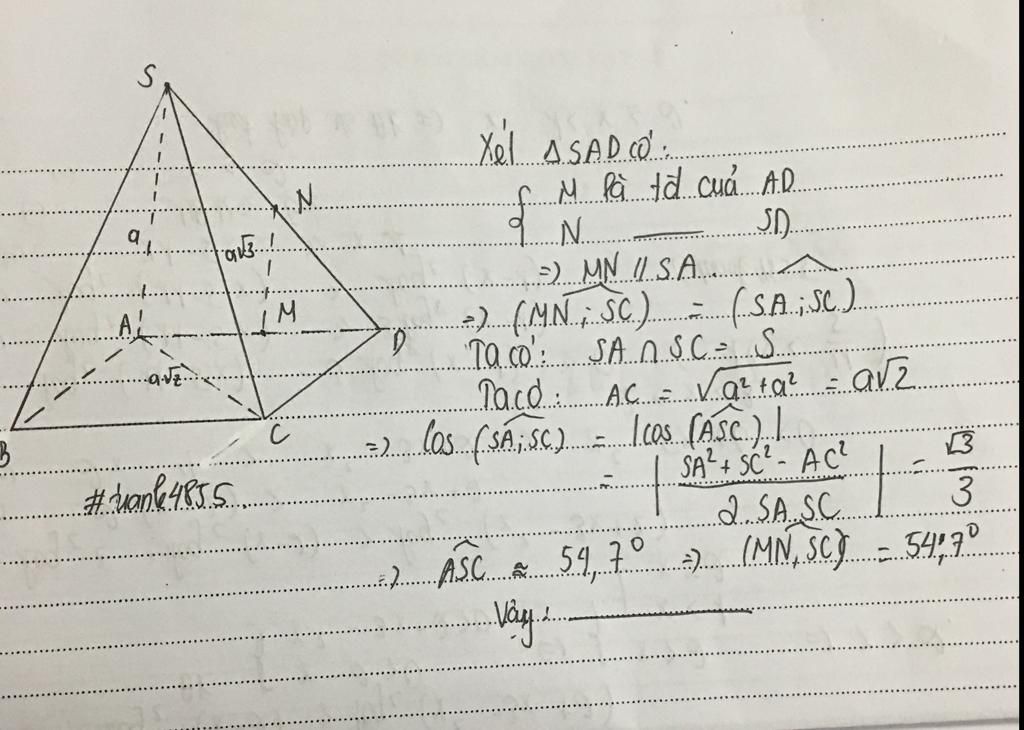 S
N
a
a√3
A
M
D
a√2
B
C
#tranle4855.
Xét ΔSAD có:
{ M là tđ của AD
N —— SD
=) MN // SA.
=) (MN ; SC) = (SA ; SC)
Ta có: SA ∩ SC = S
Ta có: AC = √(a² + a²) = a√2
=) Cos (SA ; SC) = |cos (ASC)|
= | (SA² + SC² - AC²) / (2.SA.SC) | = √3/3
=) ASC ≈ 54,7° =) (MN, SC) = 54,7°
Vậy: ————